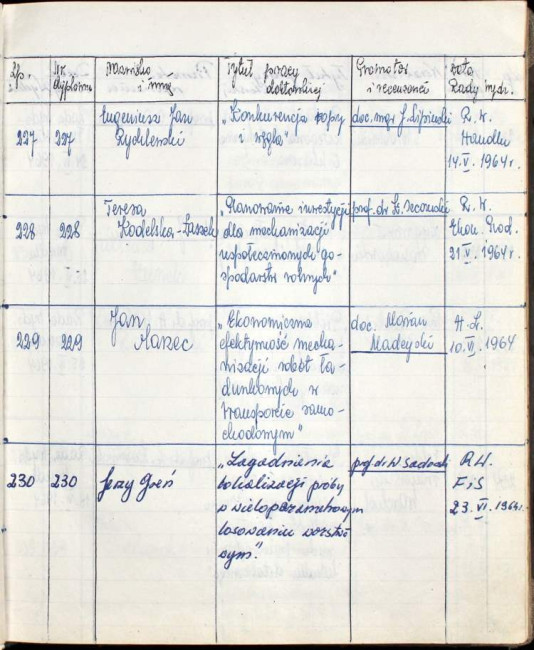 Lp.
Nr dyplomu
Nazwisko i imię
Tytuł pracy doktorskiej
Promotor i recenzenci
Data Rady Wydz.
227
227
Eugeniusz Jan
Rychlewski
„Konkurencja ropy
i węgla"
doc. mgr J. Lipiński
R. W.
Handlu
14.V.1964 r.
228
228
Teresa
„Planowanie inwestycji
dla mechanizacji
uspołecznionych go-
spodarstw rolnych"
prof. dr K. Secomski
R. W.
Ekon. Prod.
21.V.1964 r.
229
229
Jan
„Ekonomiczna
efektywność mecha-
nizacji robót ła-
dunkowych w
transporcie samo-
chodowym"
doc. Marian
Madeyski
10.VI.1964
230
230
Jerzy Greń
„Zagadnienia
lokalizacji próby
o wieloparametrowym
losowaniu warstwo-
wym".
prof. dr W. Sadowski
R.W.
FiS
23.VI.1964 r.